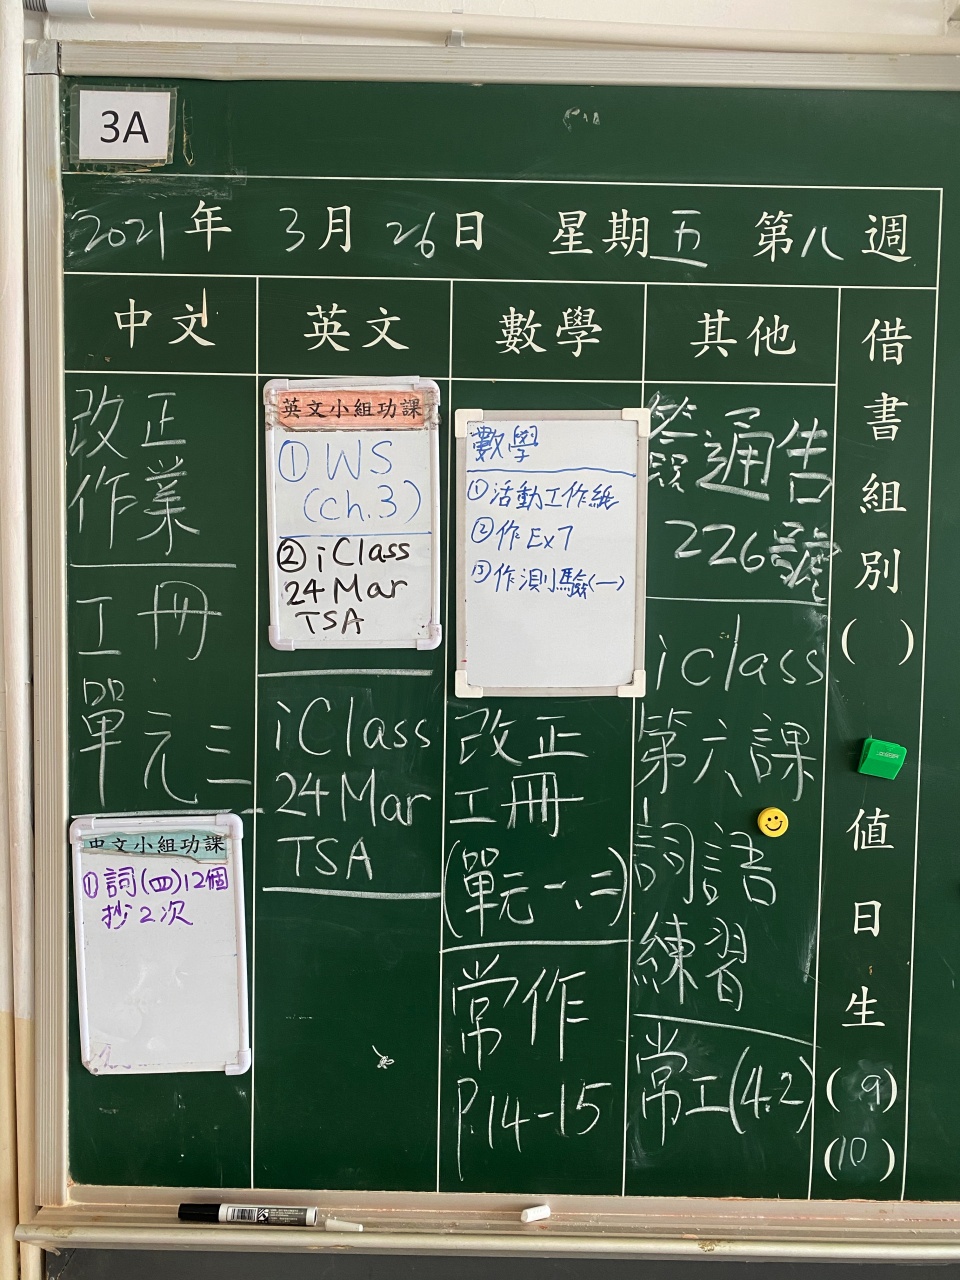 3A
2021年 3月 26日 星期五 第八週
中文
改正
作業
工冊
單元三
中文小組功課
①詞(四)12個
抄2次
英文
英文小組功課
① WS
(ch.3)
② iClass
24 Mar
TSA
iClass
24 Mar
TSA
數學
數學
①活動工作紙
②作Ex7
③作測驗(一)
改正
工冊
(單元一、二)
常作
P.14-15
其他
通告
226號
iClass
第六課
詞語
練習
常工(4.2)
借書組別( )
值日生(9)(10)